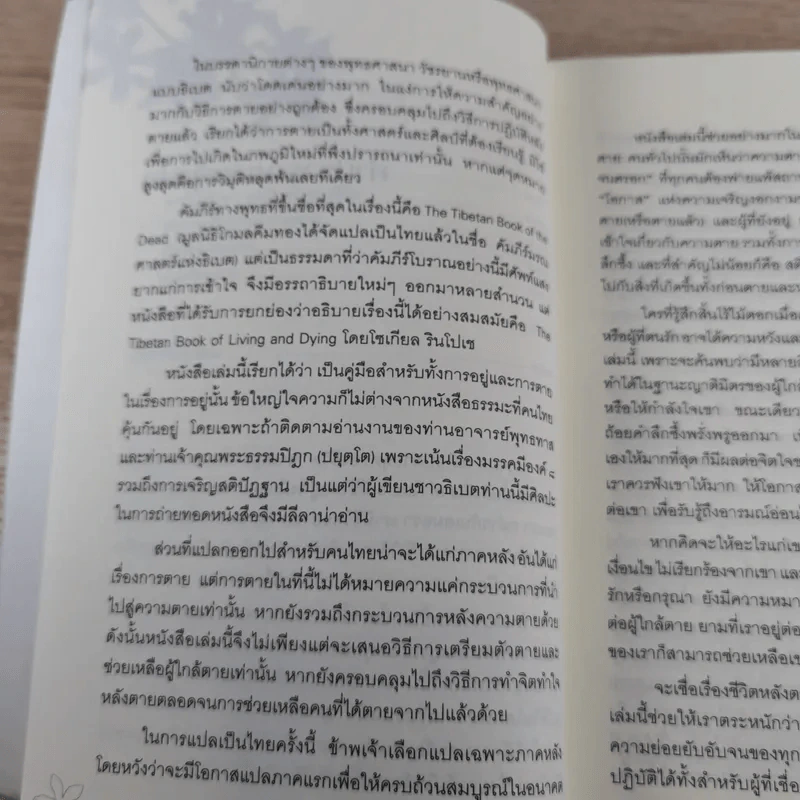 ในบรรดานิกายต่างๆ ของพุทธศาสนา วัชรยานหรือพุทธศาสนา
แบบธิเบต นับว่าโดดเด่นอย่างมาก ในแง่การให้ความสำคัญอย่าง
มากกับวิธีการตายอย่างถูกต้อง ซึ่งครอบคลุมไปถึงวิธีการปฏิบัติหลัง
ตายแล้ว เรียกได้ว่าการตายเป็นทั้งศาสตร์และศิลป์ที่ต้องเรียนรู้ มิใช่
เพื่อการไปเกิดในภพภูมิใหม่ที่พึงปรารถนาเท่านั้น หากแต่จุดหมาย
สูงสุดคือการวิมุติหลุดพ้นเลยทีเดียว
คัมภีร์ทางพุทธที่ขึ้นชื่อที่สุดในเรื่องนี้คือ The Tibetan Book of the
Dead (มูลนิธิโกมลคีมทองได้จัดแปลเป็นไทยแล้วในชื่อ คัมภีร์มรณ
ศาสตร์แห่งธิเบต) แต่เป็นธรรมดาที่ว่าคัมภีร์โบราณอย่างนี้มีศัพท์แสง
ยากแก่การเข้าใจ จึงมีอรรถาธิบายใหม่ๆ ออกมาหลายสำนวน แต่
หนังสือที่ได้รับการยกย่องว่าอธิบายเรื่องนี้ได้อย่างสมสมัยคือ The
Tibetan Book of Living and Dying โดยโซเกียล รินโปเช
หนังสือเล่มนี้เรียกได้ว่า เป็นคู่มือสำหรับทั้งการอยู่และการตาย
ในเรื่องการอยู่นั้น ข้อใหญ่ใจความก็ไม่ต่างจากหนังสือธรรมะที่คนไทย
คุ้นกันอยู่ โดยเฉพาะถ้าติดตามอ่านงานของท่านอาจารย์พุทธทาส
และท่านเจ้าคุณพระธรรมปิฎก (ปยุตฺโต) เพราะเน้นเรื่องมรรคมีองค์ ๘
รวมถึงการเจริญสติปัฏฐาน เป็นแต่ว่าผู้เขียนชาวธิเบตท่านนี้มีศิลปะ
ในการถ่ายทอดหนังสือจึงมีลีลาน่าอ่าน
ส่วนที่แปลกออกไปสำหรับคนไทยน่าจะได้แก่ภาคหลัง อันได้แก่
เรื่องการตาย แต่การตายในที่นี้ไม่ได้หมายความแค่กระบวนการที่นำ
ไปสู่ความตายเท่านั้น หากยังรวมถึงกระบวนการหลังความตายด้วย
ดังนั้นหนังสือเล่มนี้จึงไม่เพียงแต่จะเสนอวิธีการเตรียมตัวตายและ
ช่วยเหลือผู้ใกล้ตายเท่านั้น หากยังครอบคลุมไปถึงวิธีการทำจิตทำใจ
หลังตายตลอดจนการช่วยเหลือคนที่ได้ตายจากไปแล้วด้วย
ในการแปลเป็นไทยครั้งนี้ ข้าพเจ้าเลือกแปลเฉพาะภาคหลัง
โดยหวังว่าจะมีโอกาสแปลภาคแรกเพื่อให้ครบถ้วนสมบูรณ์ในอนาคต
หนังสือเล่มนี้ช่วยอย่างมากใน
ตาย คนทั่วไปนั้นมักเห็นว่าความตา
จนตรอก" ที่ทุกคนต้องพ่ายแพ้สถาน
"โอกาส" แห่งความเจริญงอกงามท
ตาย(หรือตายแล้ว) และผู้ที่ยังอยู่
เข้าใจเกี่ยวกับความตาย รวมทั้งการ
ลึกซึ้ง และที่สำคัญไม่น้อยก็คือ สติ
ไปกับสิ่งที่เกิดขึ้นทั้งก่อนตายและห
ใครที่รู้สึกสิ้นไร้ไม้ตอกเมื่อ
หรือผู้ที่ตนรัก อาจได้ความหวังและ
เล่มนี้ เพราะจะค้นพบว่ามีหลายสิ
ทำได้ในฐานะญาติมิตรของผู้ใกล้
หรือให้กำลังใจเขา ขณะเดียว
ถ้อยคำลึกซึ้งพรั่งพรูออกมา เ
เองให้มากที่สุด ก็มีผลต่อจิตใจข
เราควรฟังเขาให้มาก ให้โอกาส
ต่อเขา เพื่อรับรู้ถึงอารมณ์อ่อนไ
หากคิดจะให้อะไรแก่เข
เงื่อนไข ไม่เรียกร้องจากเขา แล
รักหรือกรุณา ยังมีความหมา
ต่อผู้ใกล้ตาย ยามที่เราอยู่ต่อ
ของเราก็สามารถช่วยเหลือเข
จะเชื่อเรื่องชีวิตหลังต
เล่มนี้ช่วยให้เราตระหนักว่า
ความย่อยยับอับจนของทุก
ปฏิบัติได้ทั้งสำหรับผู้ที่เชื่อ